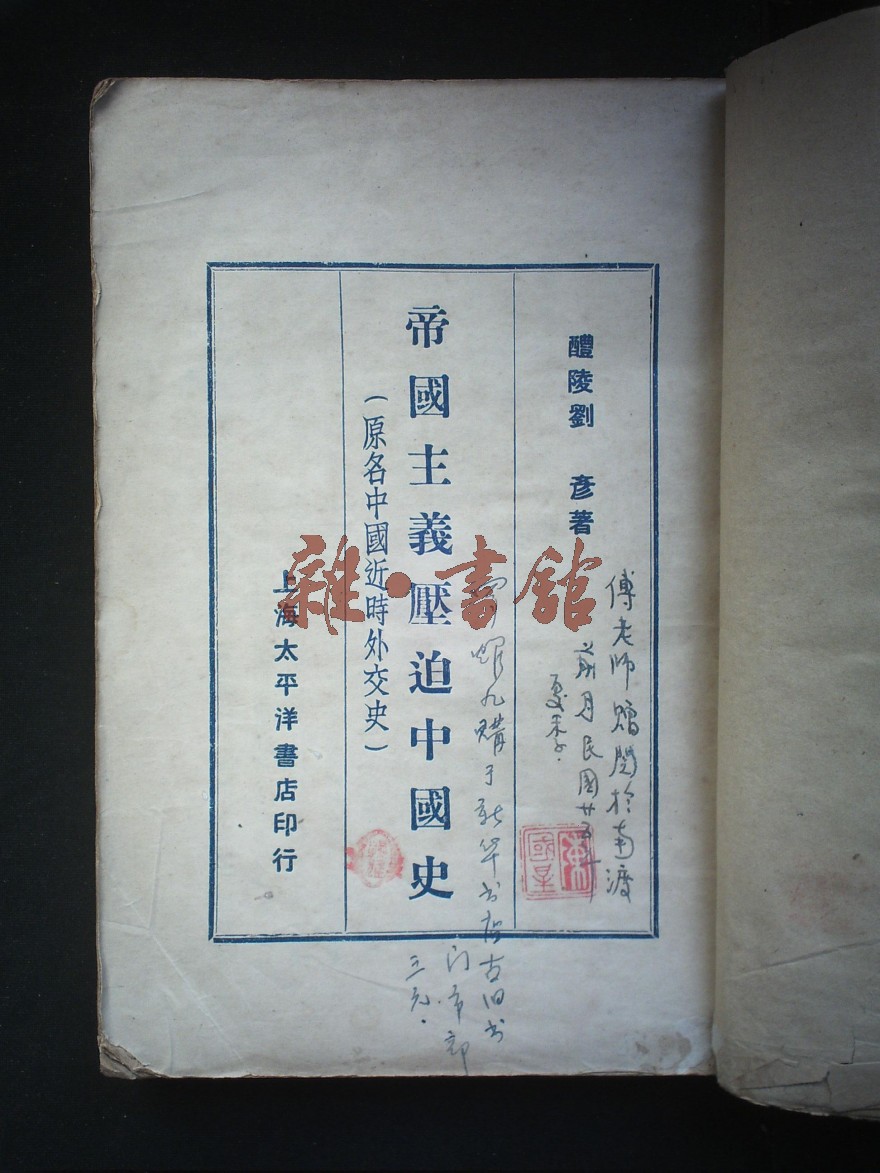 醴陵劉 彥著
帝國主義壓迫中國史
(原名中國近時外交史)
上海太平洋書店印行
傅老師贈閱於南渡
前月民國廿五年
夏季.
九購于新华书店古旧书
门市部
三元.
雜·書館